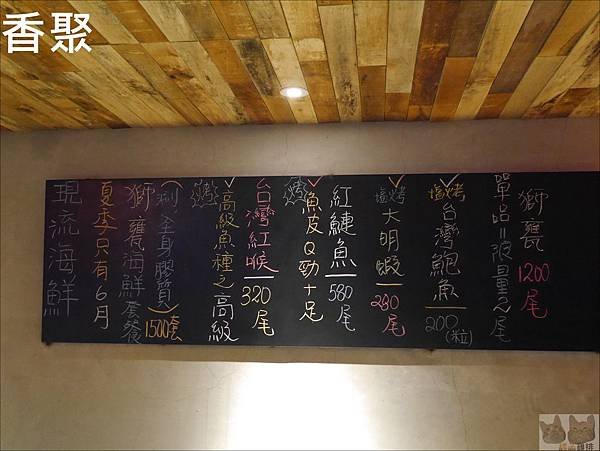 香聚
獅甕 1200尾
單品=限量2尾
塩烤台灣鮑魚 200(粒)
塩烤大明蝦 280尾
紅鰱魚 580尾
烤 魚皮Q勁十足
台灣紅喉 320尾
烤 高級魚種之高級
(涮)全身膠質)
獅甕海鮮套餐 1500套
夏季只有6月
現流海鮮